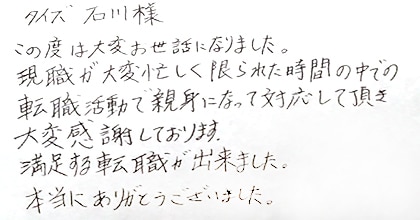 タイズ 石川様
この度は大変お世話になりました。
現職が大変忙しく限られた時間の中での
転職活動で親身になって対応して頂き
大変感謝しております.
満足する転職が出来ました。
本当にありがとうございました。